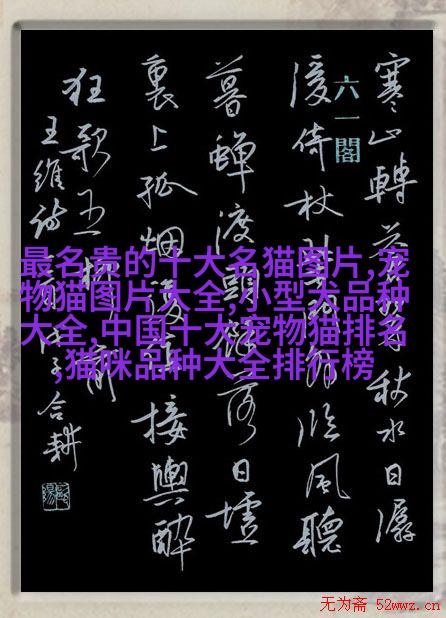 寒山轉蒼翠秋水日潺
六一閣
湲倚杖柴門外臨風聽
暮蟬渡頭餘落日墟
裏上孤烟復值接輿醉
狂歌五柳前
王維詩
合耕
最名贵的十大名猫图片,宠
物猫图片大全,小型犬品种
大全,中国十大宠物猫排名
,猫咪品种大全排行榜
无为斋 52wwz.cn